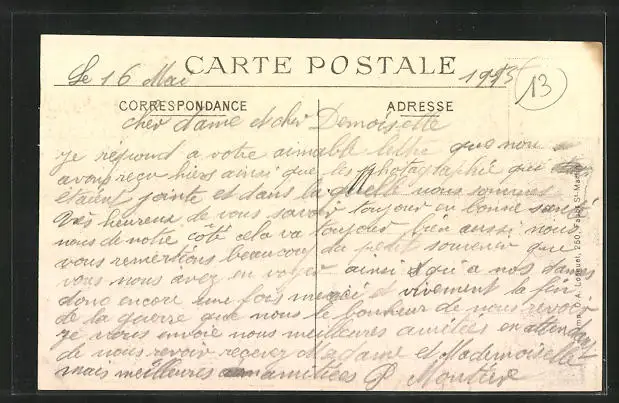 CARTE POSTALE
Le 16 Mai 1915
13
CORRESPONDANCE ADRESSE
cher dame et cher Demoisette
je répond a votre aimable lettre que nou
avont reçu hiers ainsi que les photographie qui
étaient jointe et dans la quelle nous sommes
très heureux de vous savoir toujour en bonne santé
nous de notre côté cela va toujour bien aussi nous
vous remertions beaucoup du petit souvenir que
vous nous avez en voyer ainsi qu'a nos dames
donc encore une fois merci et vivement la fin
de la guerre que nous le bonheur de nous revoir
je vous envoie nous meilleures amitiées en attendant
de nous revoir recevez Madame et Mademoiselle
mais meilleures amitiées P Montève
Imp. A. Lorquel, 250, Faub. St-Martin